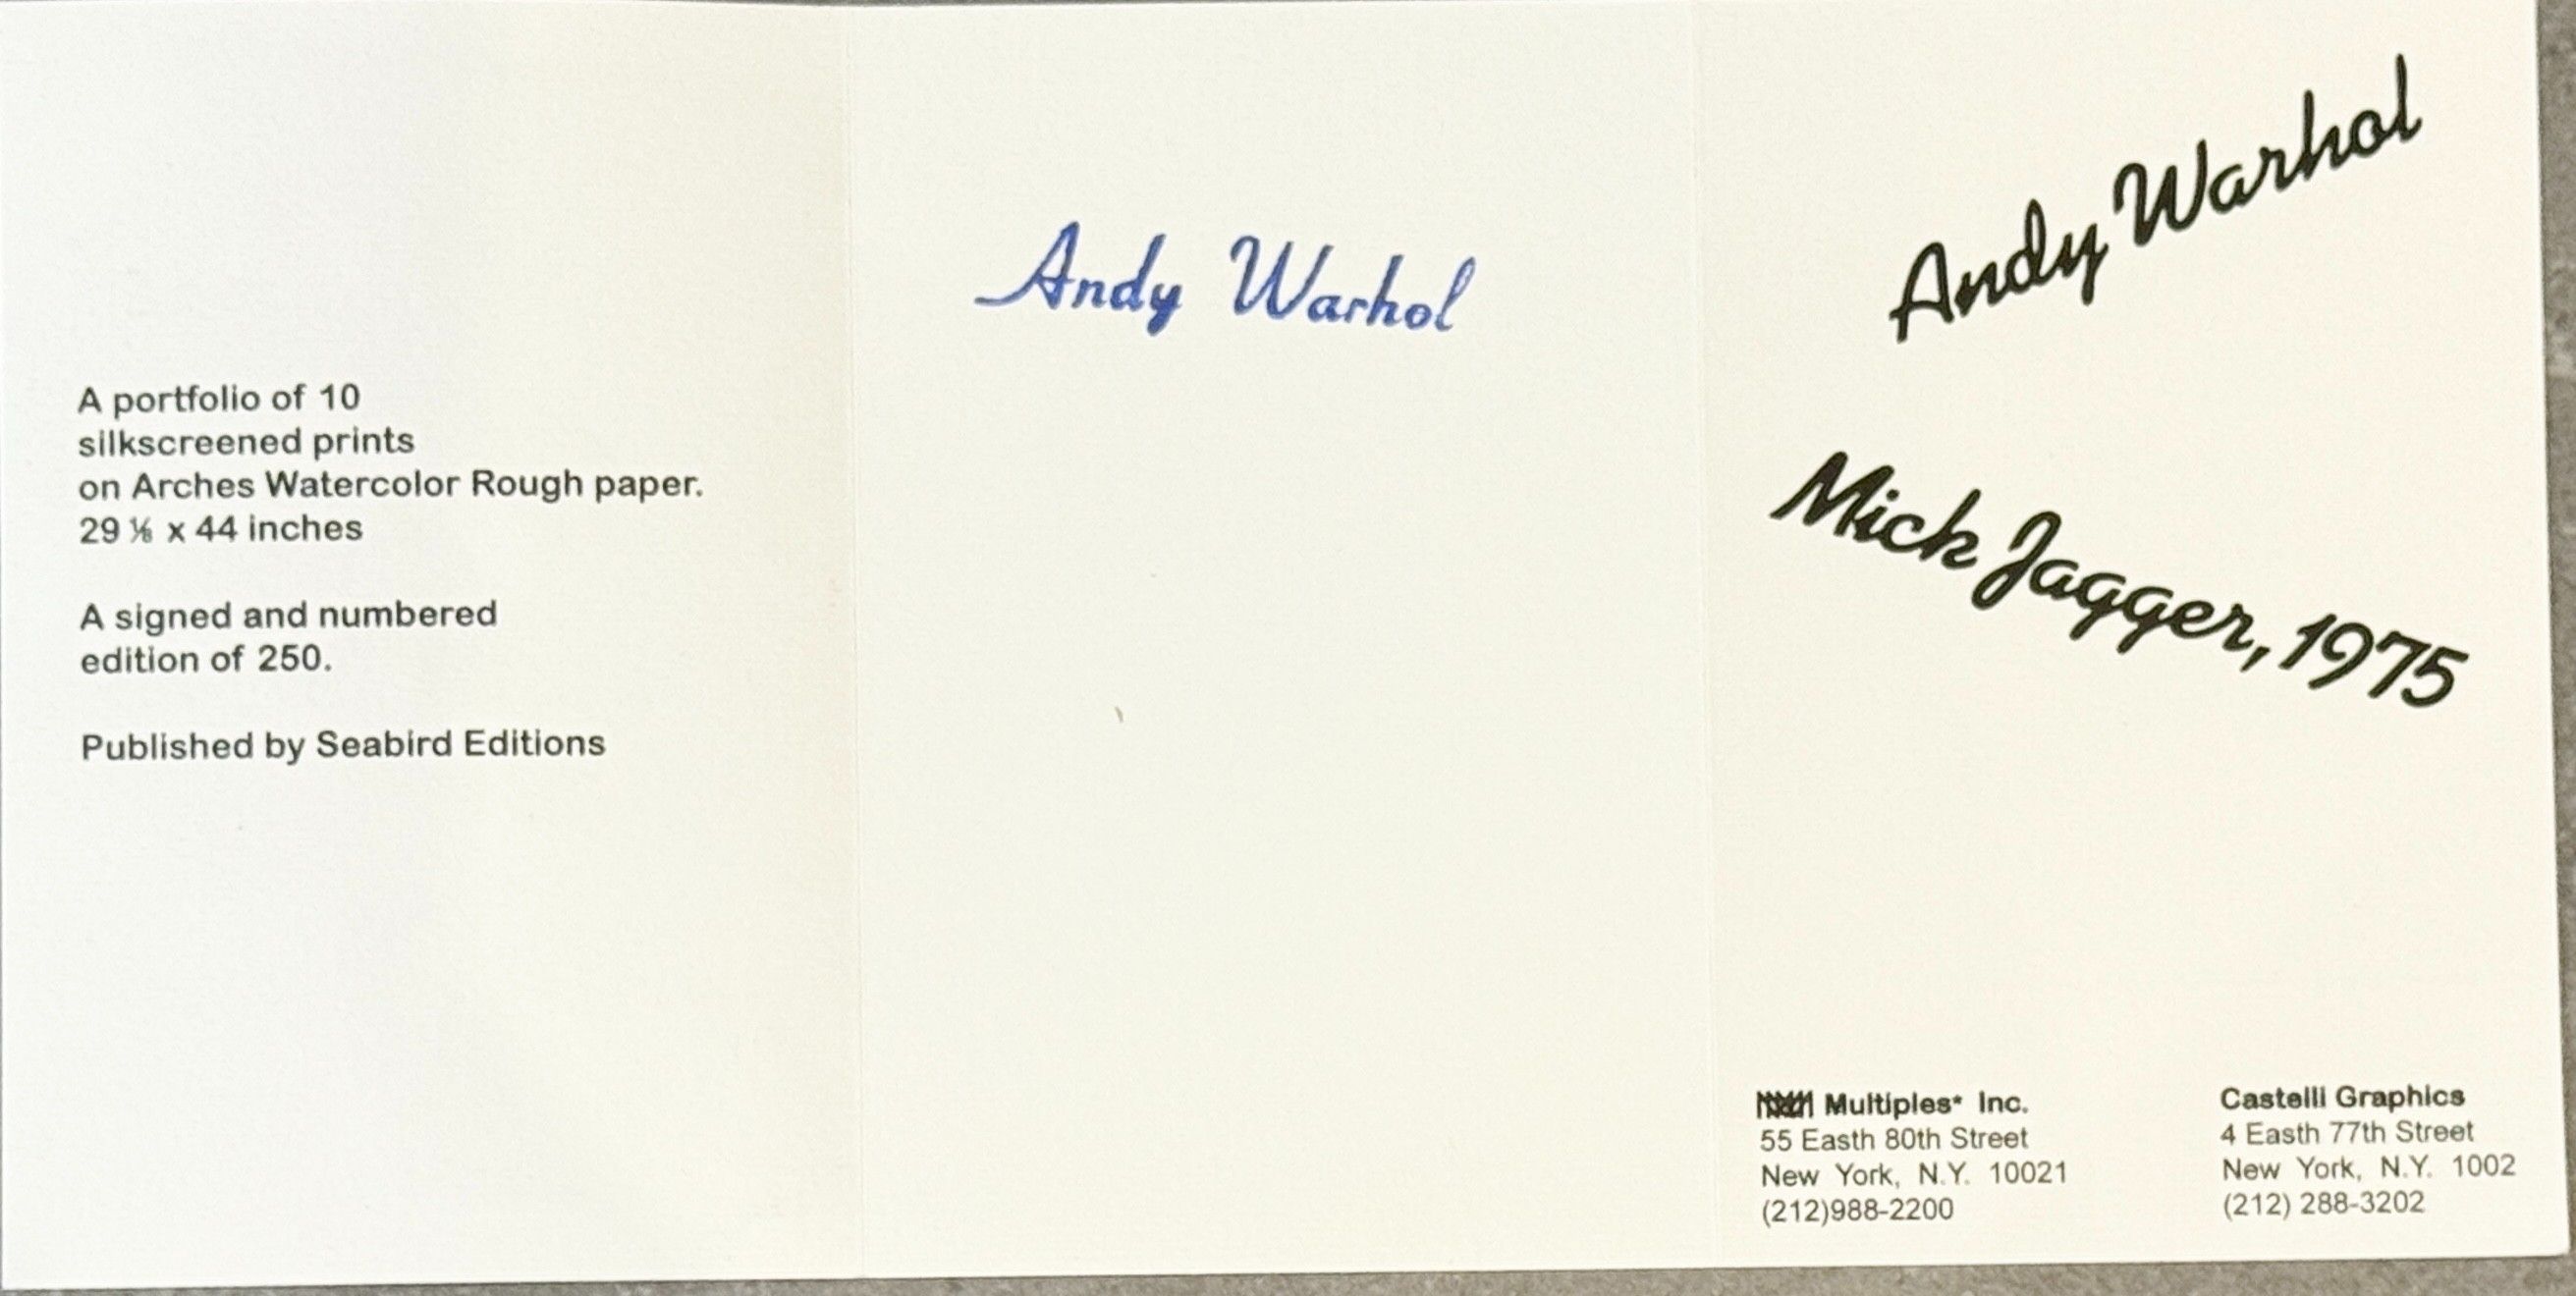 A portfolio of 10
silkscreened prints
on Arches Watercolor Rough paper.
29 ⅛ x 44 inches
A signed and numbered
edition of 250.
Published by Seabird Editions
Andy Warhol
Andy Warhol
Mick Jagger, 1975
Multiples* Inc.
55 Easth 80th Street
New York, N.Y. 10021
(212)988-2200
Castelli Graphics
4 Easth 77th Street
New York, N.Y. 1002
(212) 288-3202